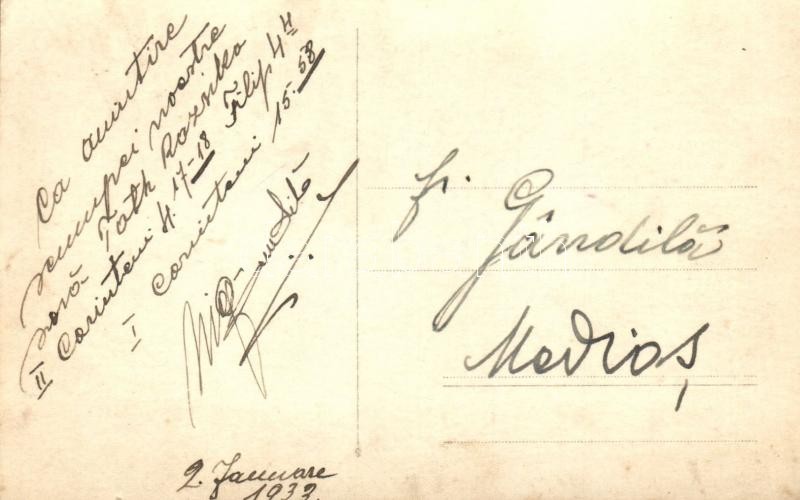 Ca amintire
scumpei noastre
soră Toth Rozsika
II Corinteni 4. 17-18 Filip 4 4
I Corinteni 15.58
fr. Gândilă
Mediaș
2. Januare
1933.